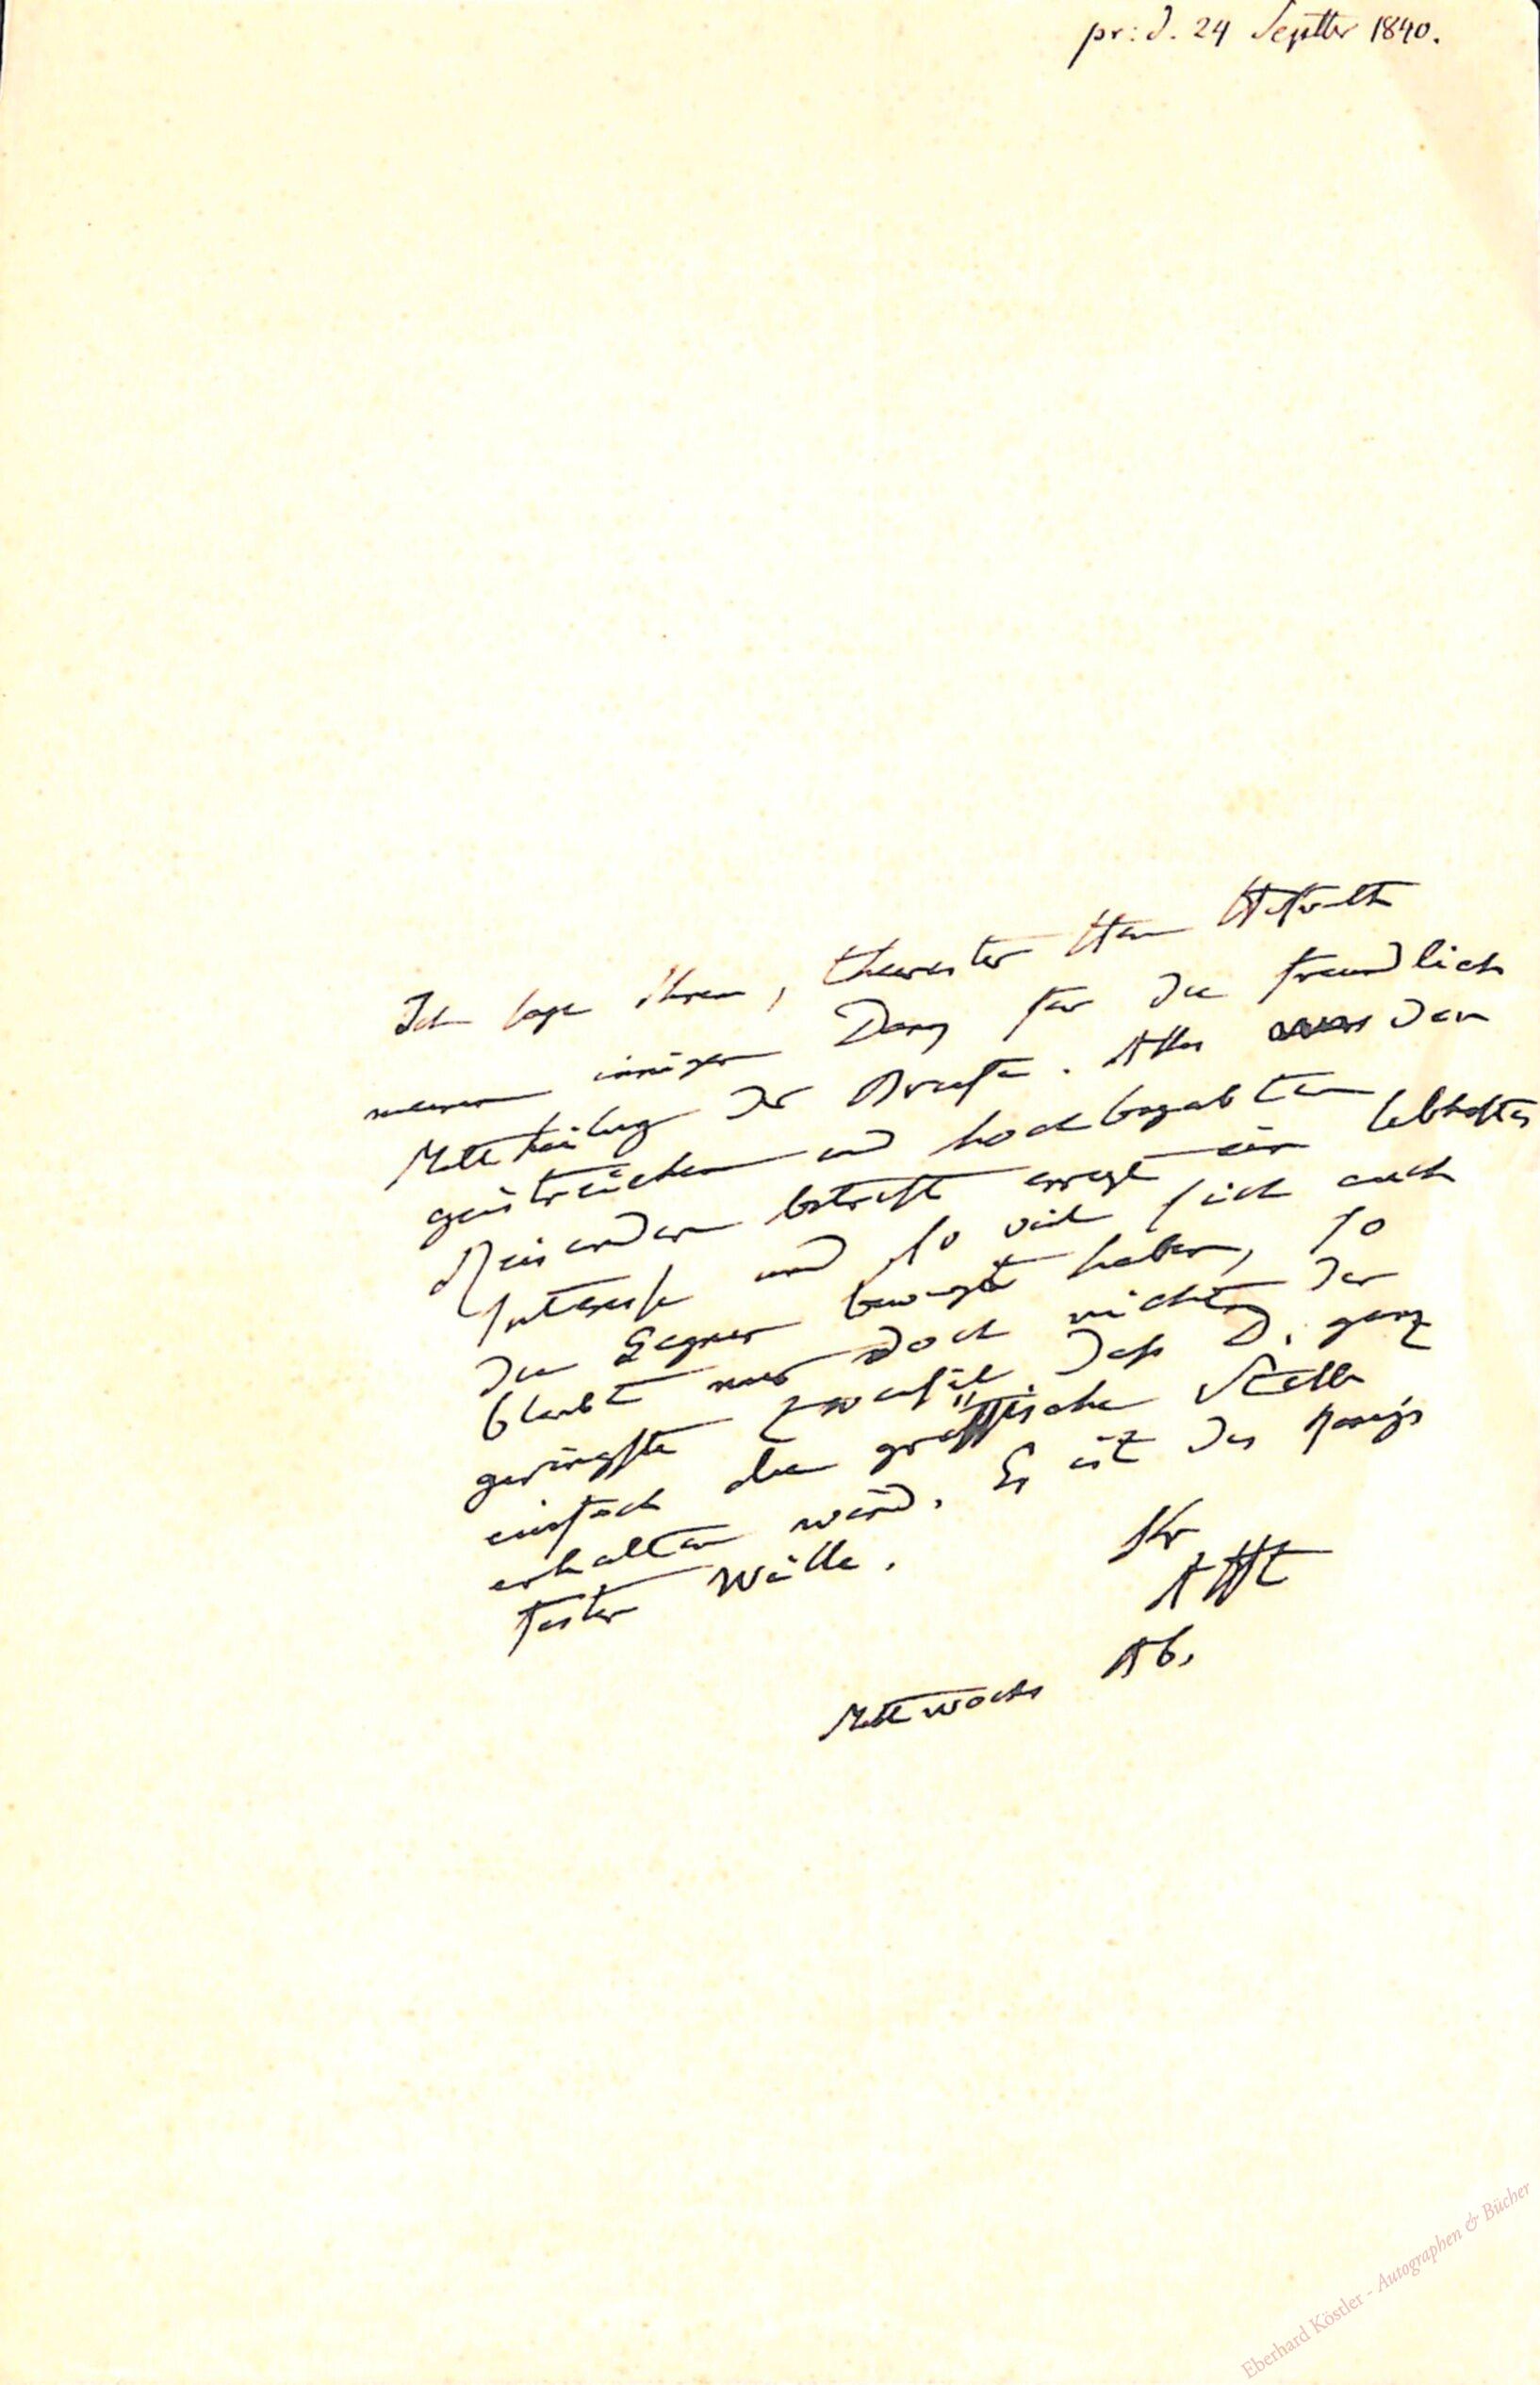 pr: d. 24 Septbr 1840.
Ich sage Ihnen, theuerster Herr
meinen innigen Dank für die freundlich
Mittheilung der Briefe. Alles was den
geistreichen und hochbegabten
Reisenden betrifft erregt ein lebhaftes
Interesse und so viel sich auch
die Gegner bewegt haben, so
bleibt mir doch nicht der
geringste Zweifel, dass D. ganz
einfach die gräffische Stelle
erhalten wird. Es ist des Königs
fester Wille.
Ihr
AHt
Mittwochs Ab.
Eberhard Köstler - Autographen & Bücher